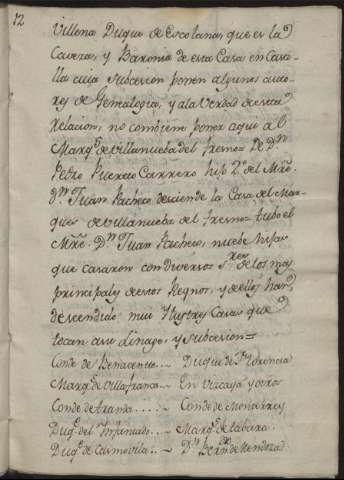 12
Villena Duque de Escolana, que es la
Cavesa, y Baronia de esta Casa en Casti-
lla cuia subcesion ponen algunos auto-
res de Genealogia, y a la Verdad de esta
Relacion, no combiene poner aqui al
Marq.s de Villanueba del fresno D.n
Pedro Puerto Carrero hijo 2.º del Mrē.
D.n Juan Pacheco desciende la Casa del Mar-
ques de Villanueba del fresno tubo el
Mrē. D.n Juan Pacheco, nuebe hijas
que casaron con diversos s.res de los mas
principales de estos Reynos, y de ellos han
descendido mui Ilustres Casas que
tocan a su Linage, y subcesion=
Conde de Benavente .. Duque de
Marq.s de Villafranca .. En Viscaya y otros
Conde de Aranda .... Conde de Monterrey
Duq.e del Infantado .. Marq.s de Tabara
Duq.e de .. D.n Bern.no de Mendoza